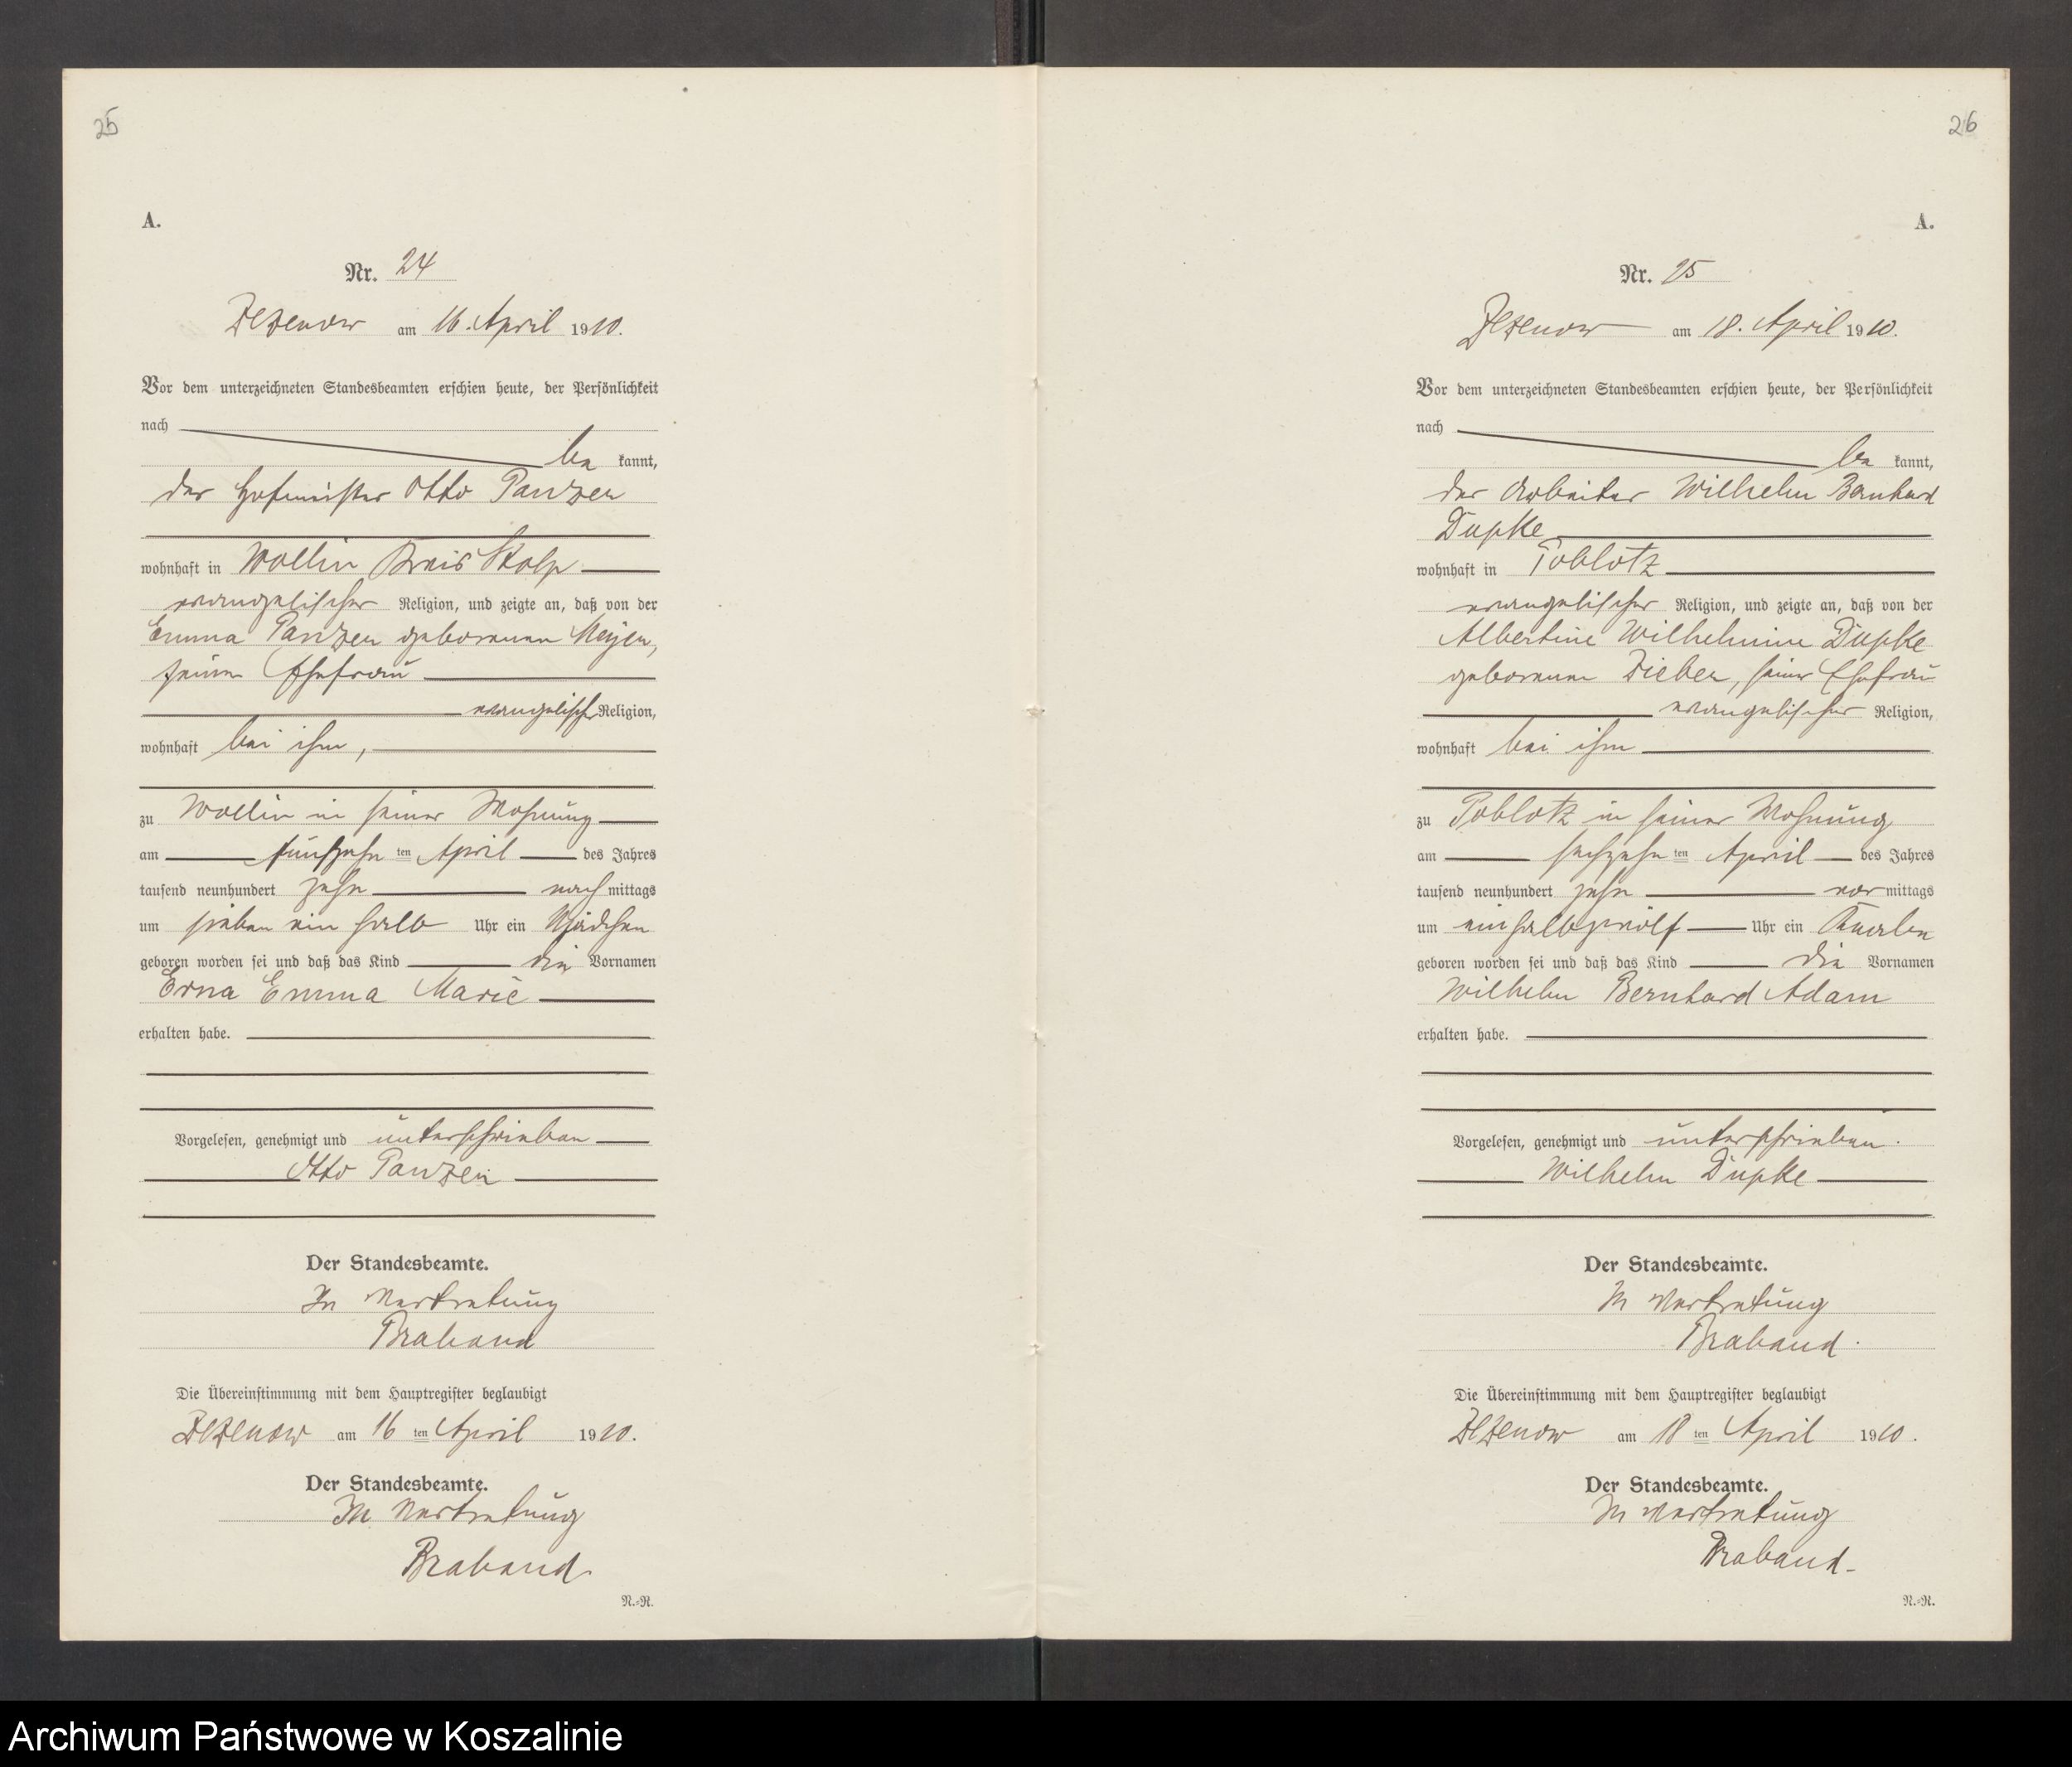 25
A.
Nr. 24
Zezenow am 16. April 1910.
Vor dem unterzeichneten Standesbeamten erschien heute, der Persönlichkeit
nach
be kannt,
der Hofmeister Otto Panzer
wohnhaft in Wollin Kreis Stolp
evangelischer Religion, und zeigte an, daß von der
Emma Panzer geborenen Meyer,
seiner Ehefrau
evangelischer Religion,
wohnhaft bei ihm,
zu Wollin in seiner Wohnung
am fünfzehn ten April des Jahres
tausend neunhundert zehn nach mittags
um sieben ein halb Uhr ein Mädchen
geboren worden sei und daß das Kind die Vornamen
Erna Emma Marie
erhalten habe.
Vorgelesen, genehmigt und unterschrieben
Otto Panzer
Der Standesbeamte.
In Vertretung
Braband
Die Übereinstimmung mit dem Hauptregister beglaubigt
Zezenow am 16 ten April 1910.
Der Standesbeamte.
In Vertretung
Braband.
N.=N.
26
A.
Nr. 25
Zezenow am 18. April 1910.
Vor dem unterzeichneten Standesbeamten erschien heute, der Persönlichkeit
nach
be kannt,
der Arbeiter Wilhelm Bernhard
Dupke
wohnhaft in Poblotz
evangelischer Religion, und zeigte an, daß von der
Albertine Wilhelmine Dupke
geborenen Zieber, seiner Ehefrau
evangelischer Religion,
wohnhaft bei ihm
zu Poblotz in seiner Wohnung
am sechzehn ten April des Jahres
tausend neunhundert zehn vor mittags
um einhalbzwölf Uhr ein Knabe
geboren worden sei und daß das Kind die Vornamen
Wilhelm Bernhard Adam
erhalten habe.
Vorgelesen, genehmigt und unterschrieben.
Wilhelm Dupke
Der Standesbeamte.
In Vertretung
Braband.
Die Übereinstimmung mit dem Hauptregister beglaubigt
Zezenow am 18 ten April 1910.
Der Standesbeamte.
In Vertretung
Braband.
N.=N.
Archiwum Państwowe w Koszalinie